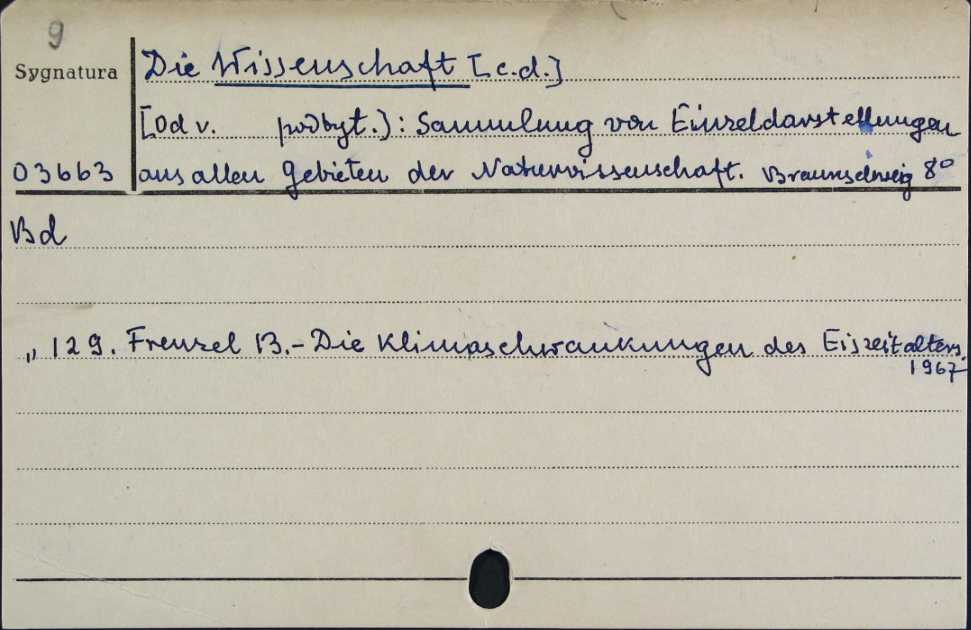 9
Sygnatura
Die Wissenschaft [c.d.]
[Od v. podtyt.]: Sammlung von Einzeldarstellungen
03663 aus allen Gebieten der Naturwissenschaft. Braunschweig 8°
Bd
„ 129. Frenzel B.- Die Klimaschwankungen des Eiszeitalters.
1967